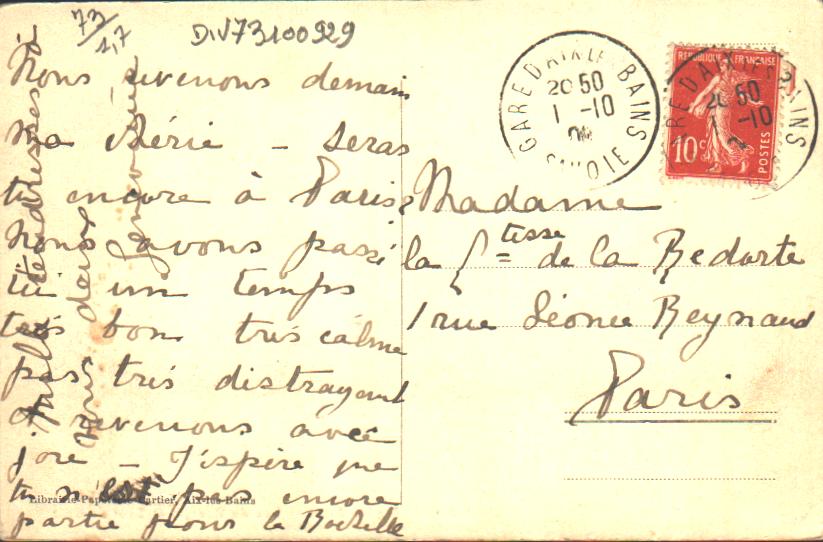 73
1,7
DIV73100929
Nous revenons demain
ma chérie – seras
tu encore à Paris?
Nous avons passé
ici un temps
très bon très calme
pas très distrayant
revenons avec
joie – J'espère que
tu n'es pas encore
partie pour la Rochelle
Mille tendresses
de
Geneviève
Librairie-Papeterie Cartier, Aix-les-Bains
GARE D'AIX-LES-BAINS
20 50
1 -10
SAVOIE
REPUBLIQUE FRANÇAISE
10c
POSTES
GARE D'AIX-LES-BAINS
20 50
1 -10
Madame
la Ctesse de la Bedorte
1 rue Léonce Reynaud
Paris